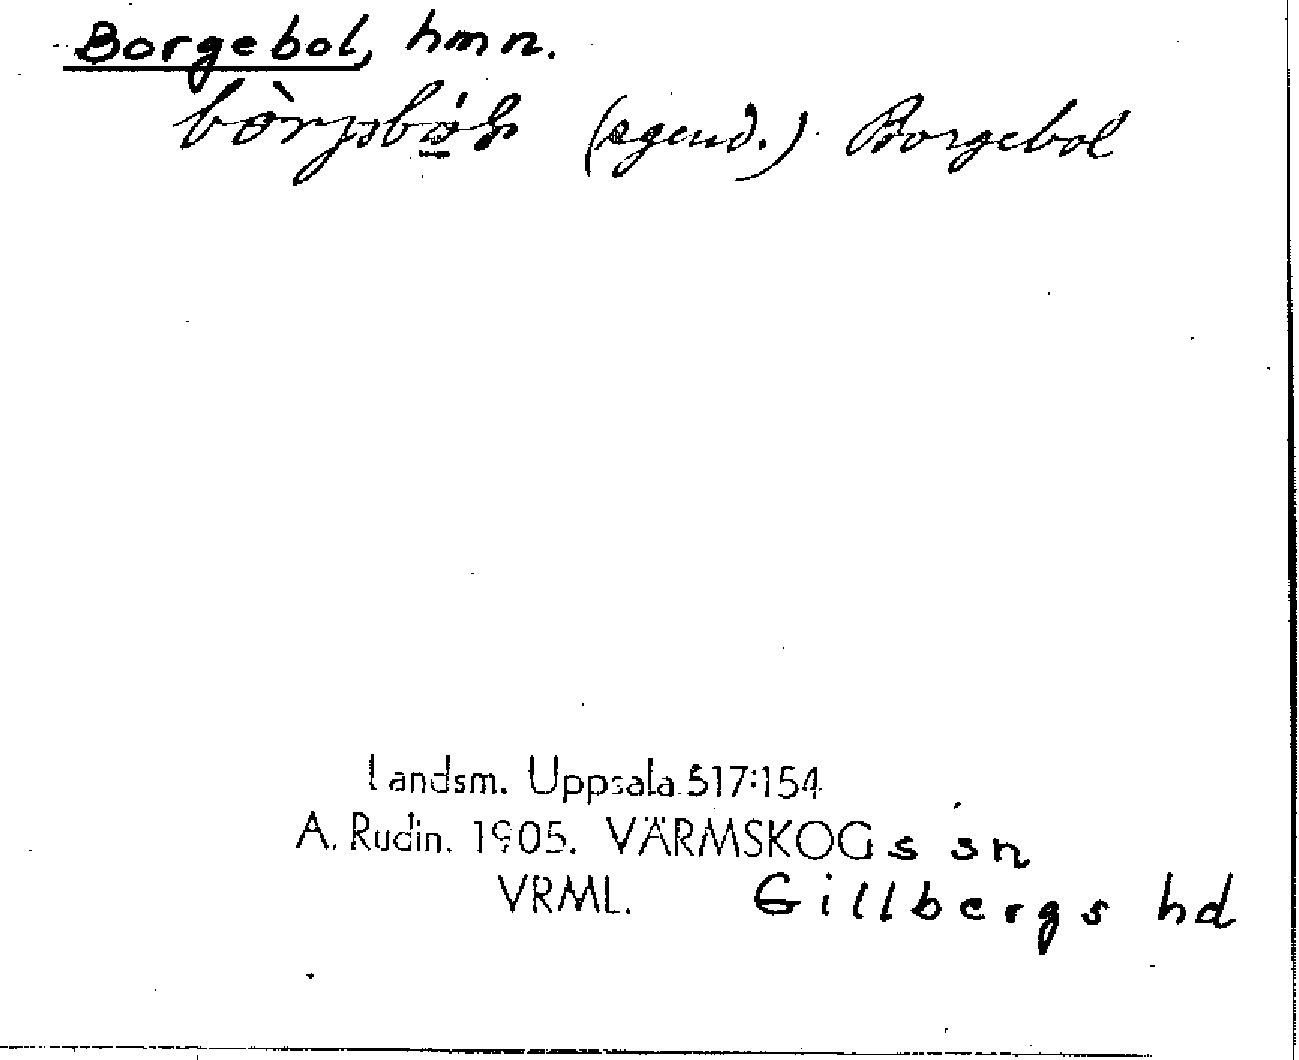 Borgebol, hmn.
(egend.) Borgebol
Landsm. Uppsala 517:154
A. Rudin. 1905. VÄRMSKOGs sn
VRML. Gillbergs hd